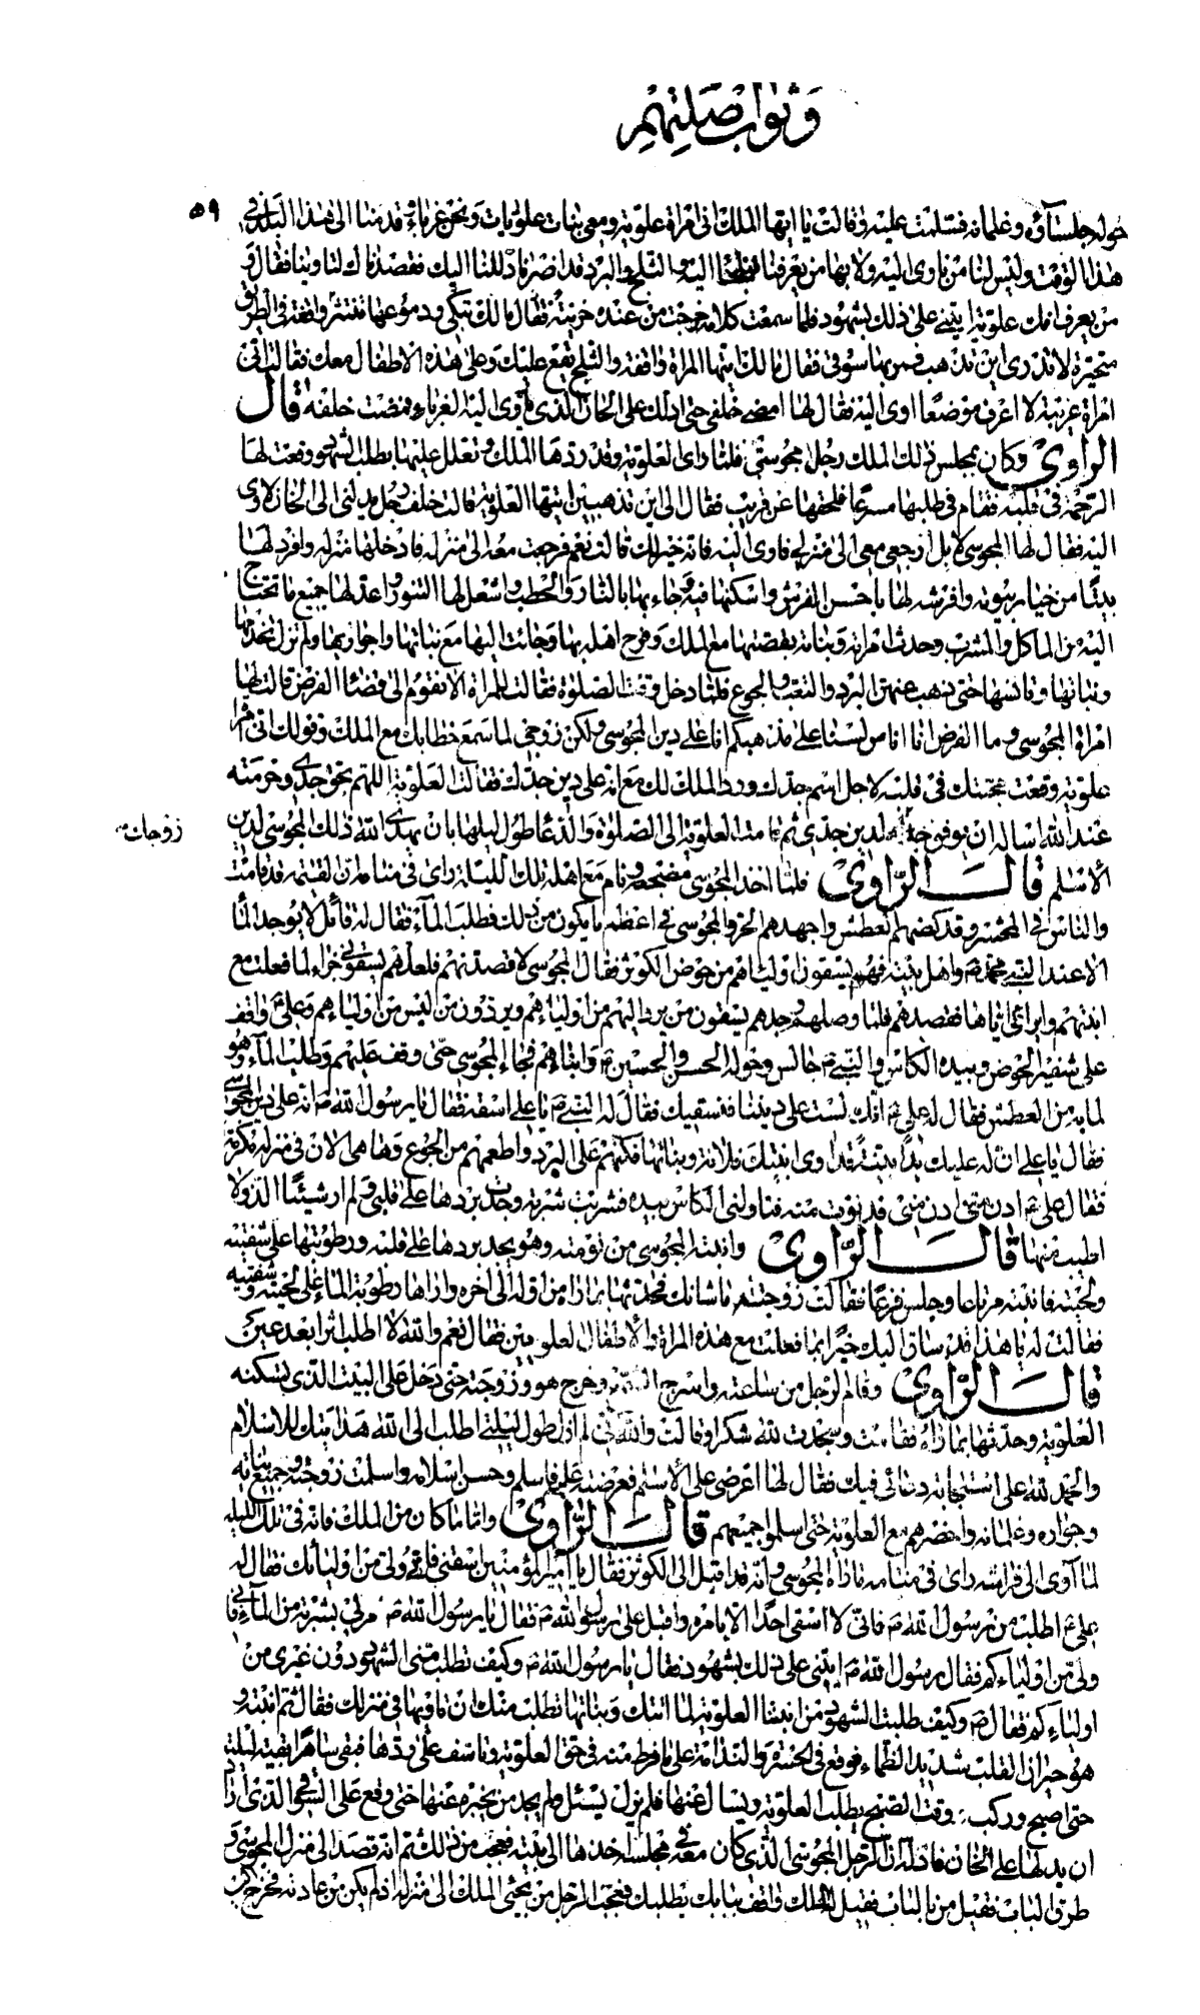 وثواب صلتهم
٥٩
حوله جلسآؤه وغلمانه فسلمت عليه وقالت يا ايها الملك انى امراة علوية ومعى بنات علويات ونحن غرباء قدمنا الى هذا البلد فى
هذا الوقت وليس لنا من ناوى اليه ولا بها من يعرفنا اليه والثلج والبرد قد اضر بنا دللنا اليك فقصدناك لتاوينا فقال و
من يعرف انك علوية ايتينى على ذلك بشهود فلما سمعت كلامه خرجت من عنده حزينة فقال مالك تبكى ودموعها منتثرة واقفة فى الطريق
متحيرة لا تدرى اين تذهب فمر بها سوقى فقال مالك ايتها المراة واقفة والثلج يقع عليك وعلى هذه الاطفال معك فقالت انى
امراة غريبة لا اعرف موضعا اوى اليه فقال لها امضى خلفى حتى ادلك على الخان الذى ياوى اليه الغرباء فمضت خلفه قال
الراوى وكان بمجلس ذلك الملك رجل مجوسى فلما راى العلوية وقد ردها الملك وتعلل عليها بطلب الشهود وقعت لها
الرحمة فى قلبه فقام فى طلبها مسرعا فلحقها عن قريب فقال الى اين تذهبين ايتها العلوية قالت خلف رجل يدلنى الى الخان لاوى
اليه فقال لها المجوسى لا بل ارجعى معى الى منزلى فاوى اليه فانه خير لك قالت نعم فرجعت معه الى منزله فادخلها منزله وافرد لها
بيتا من خيار بيوته وافرشه لها باحسن الفرش واسكنها فيه وجاء بها بالنار والحطب واشعل لها التنور واعد لها جميع ما تحتاج
اليه من الماكل والمشرب وحدث امراته وبناته بقصتها مع الملك وفرح اهله بها وجائت اليها مع بناتها وجواريها ولم تزل تخدمها
وبناتها وتانسها حتى ذهب عنهن البرد والتعب والجوع فلما دخل وقت الصلوة فقالت للمراة الا تقوم الى قضاء الفرض قالت لها
امراة المجوسى وما الفرض انا اناس لسنا على مذهبكم انا على دين المجوسى ولكن زوجى لما سمع خطابك مع الملك وقولك انى امراة
علوية وقعت محبتك فى قلبه لاجل اسم جدك ورد الملك لك مع انه على دين جدك فقالت العلوية اللهم بحق جدى وحرمته
عند الله اساله ان يوفق لدين جدى ثم قامت العلوية الى الصلوة والدعا طول ليلها بان يهدى الله ذلك المجوسى لدين
زوجات
الاسلم قال الراوى فلما اخذ المجوسى مضجعه ونام مع اهله تلك الليلة راى فى منامه ان القيمة قد قامت
والناس فى المحشر وقد كضهم العطش واجهدهم الحر والمجوسى فى اعظم ما يكون من ذلك فطلب المآء فقال له قائل لا يوجد المآء
الا عند النبى محمد ص واهل بيته فهم يسقون اوليائهم من حوض الكوثر فقال المجوسى لاقصدنهم فلعلهم يسقونى جزاء لما فعلت مع
ابنتهم وايوائى اياها فقصدهم فلما وصلهم وجدهم يسقون من يرد اليهم من اوليائهم ويردون من ليس من اوليائهم وعلى ع واقف
على شفير الحوض وبيده الكاس والنبى ص جالس وحوله الحسن والحسين ع وابنائهم فجاء المجوسى حتى وقف عليهم وطلب المآء وهو
لما به من العطش فقال له على ع انك لست على ديننا فنسقيك فقال له النبى ص يا على اسقه فقال يا رسول الله ص انه على دين المجوسى
فقال يا على ان له عليك يدا بينة قد اوى ابنتك فلانة وبناتها فكنهم عن البرد واطعمهم من الجوع وها هى الان فى منزله مكرمة
فقال على ع ادن منى ادن منى فدنوت منه فناولنى الكاس بيده فشربت شربة وجدت بردها على قلبى ولم ار شيئا الذ ولا
اطيب منها قال الراوى وانتبه المجوسى من نومته وهو يجد بردها على قلبه ورطوبتها على شفتيه
ولحيته فانتبه مرتاعا وجلس فزعا فقالت زوجته ما شانك فحدثها بما راه من اوله الى اخره واراها رطوبة المآء على لحيته وشفتيه
فقالت له يا هذا ان الله قد ساق اليك خيرا بما فعلت مع هذه المراة والاطفال العلويين فقال نعم والله لا اطلب اثرا بعد عين
قال الراوى وقام الرجل من ساعته واسرج الشمع وخرج هو وزوجته حتى دخل على البيت الذى تسكنه
العلوية وحدثها بما راه فقامت وسجدت لله شكرا وقالت والله انى لم ازل طول ليلتى اطلب الى الله هدايتك للاسلام
والحمد لله على استجابة دعائى فيك فقال لها اعرضى على الاسلم فعرضته عليه فاسلم وحسن اسلامه واسلمت زوجته وجميع بناته
وجواره وغلمانه واحضرهم مع العلوية حتى اسلموا جميعهم قال الراوى واما ما كان من الملك فانه فى تلك الليلة
لما آوى الى فراشه راى فى منامه ما راه المجوسى وانه قد اقبل الى الكوثر فقال يا امير المؤمنين اسقنى فانى ولى من اوليائك فقال له
على ع اطلب من رسول الله ص فانى لا اسقى احدا الا بامره واقبل على رسول الله ص فقال يا رسول الله ص مر لى بشربة من المآء فانى
ولى من اوليائكم فقال رسول الله ص ايتنى على ذلك بشهود فقال يا رسول الله ص وكيف تطلب منى الشهود دون غيرى من
اوليائكم فقال ص وكيف طلبت الشهود من ابنتنا العلوية لما اتتك وبناتها تطلب منك ان تاويها فى منزلك فقال ثم انتبه و
هو حيران القلب شديد الظماء فوقع فى الحسرة والندامة على ما فرط منه فى حق العلوية وتاسف على ردها فبقى ساهرا بقية ليلته
حتى اصبح وركب وقت الصبح يطلب العلوية ويسال عنها فلم يزل يسئل ولم يجد من يخبره عنها حتى وقع على السوقى الذى اراد
ان يدلها على الخان فاعلمه ان الرجل المجوسى الذى كان معه فى مجلسه اخذها الى بيته فعجب من ذلك ثم انه قصد الى منزل المجوسى و
طرق الباب فقيل من بالباب فقيل الملك واقف ببابك يطلبك فعجب الرجل من مجئ الملك الى منزله اذ لم يكن من عادته فخرج